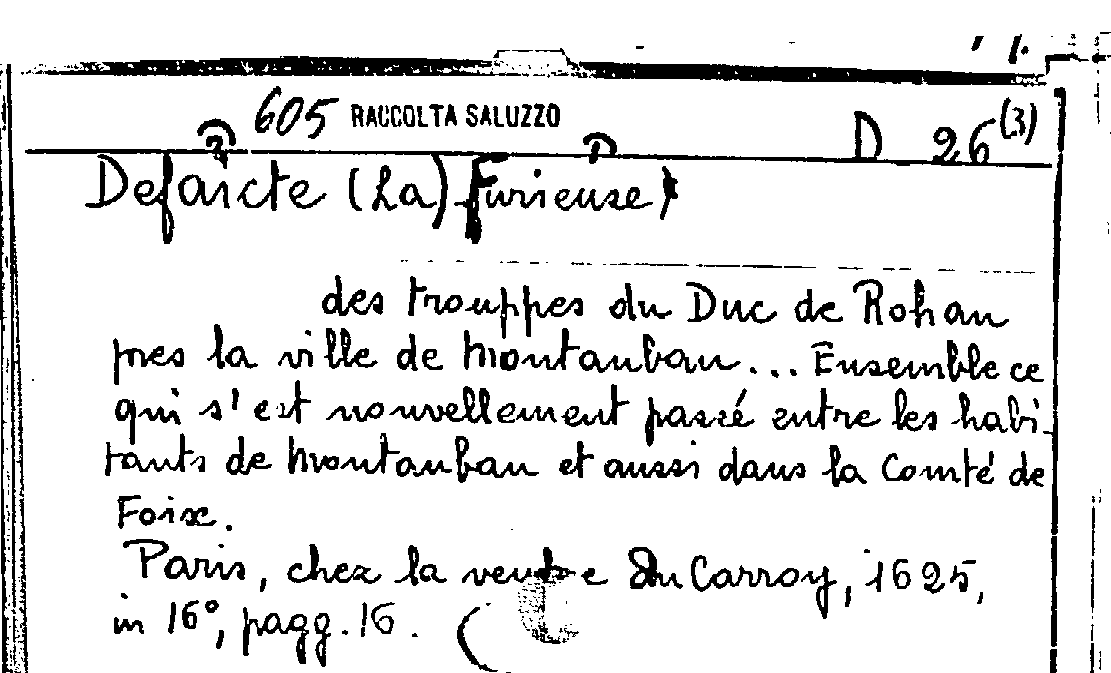 605 RACCOLTA SALUZZO D 26(3)
Defaicte (La) Furieuse)
des trouppes du Duc de Rohan
pres la ville de Montauban... Ensemble ce
qui s'est nouvellement passé entre les habi-
tants de Montauban et aussi dans la Comté de
Foix.
Paris, chez la veufve Du Carroy, 1625,
in 16°, pagg. 16.